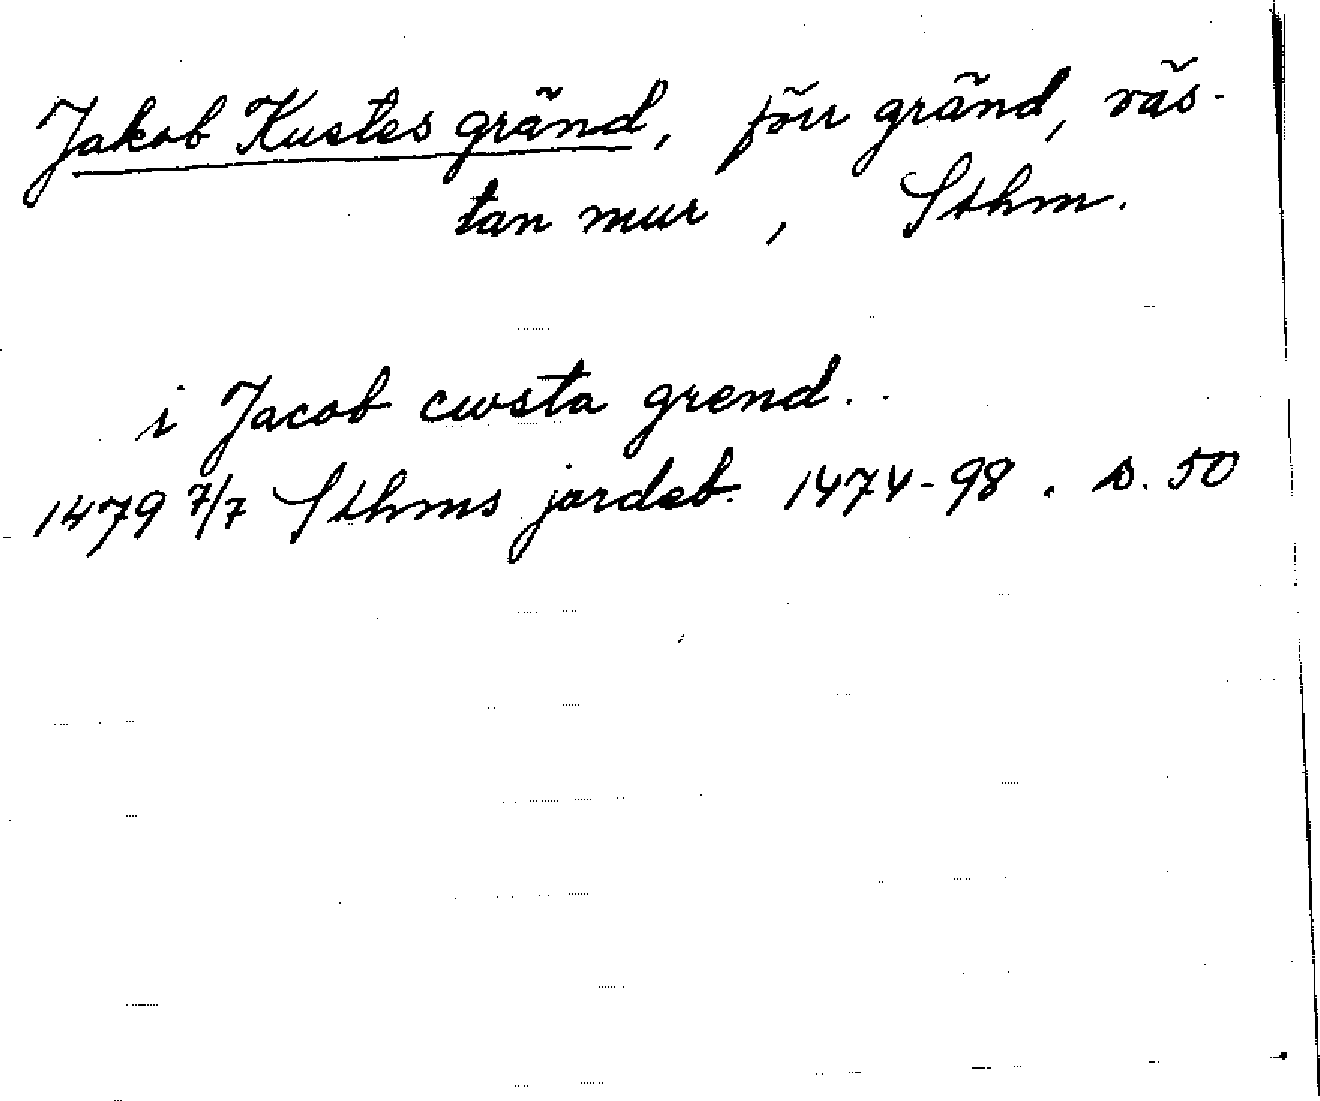 Jakob Kustes gränd, förr gränd, väs-
tan mur, Sthm.
i Jacob cwsta grend..
1479 7/7 Sthms jordeb. 1474-98. s. 50